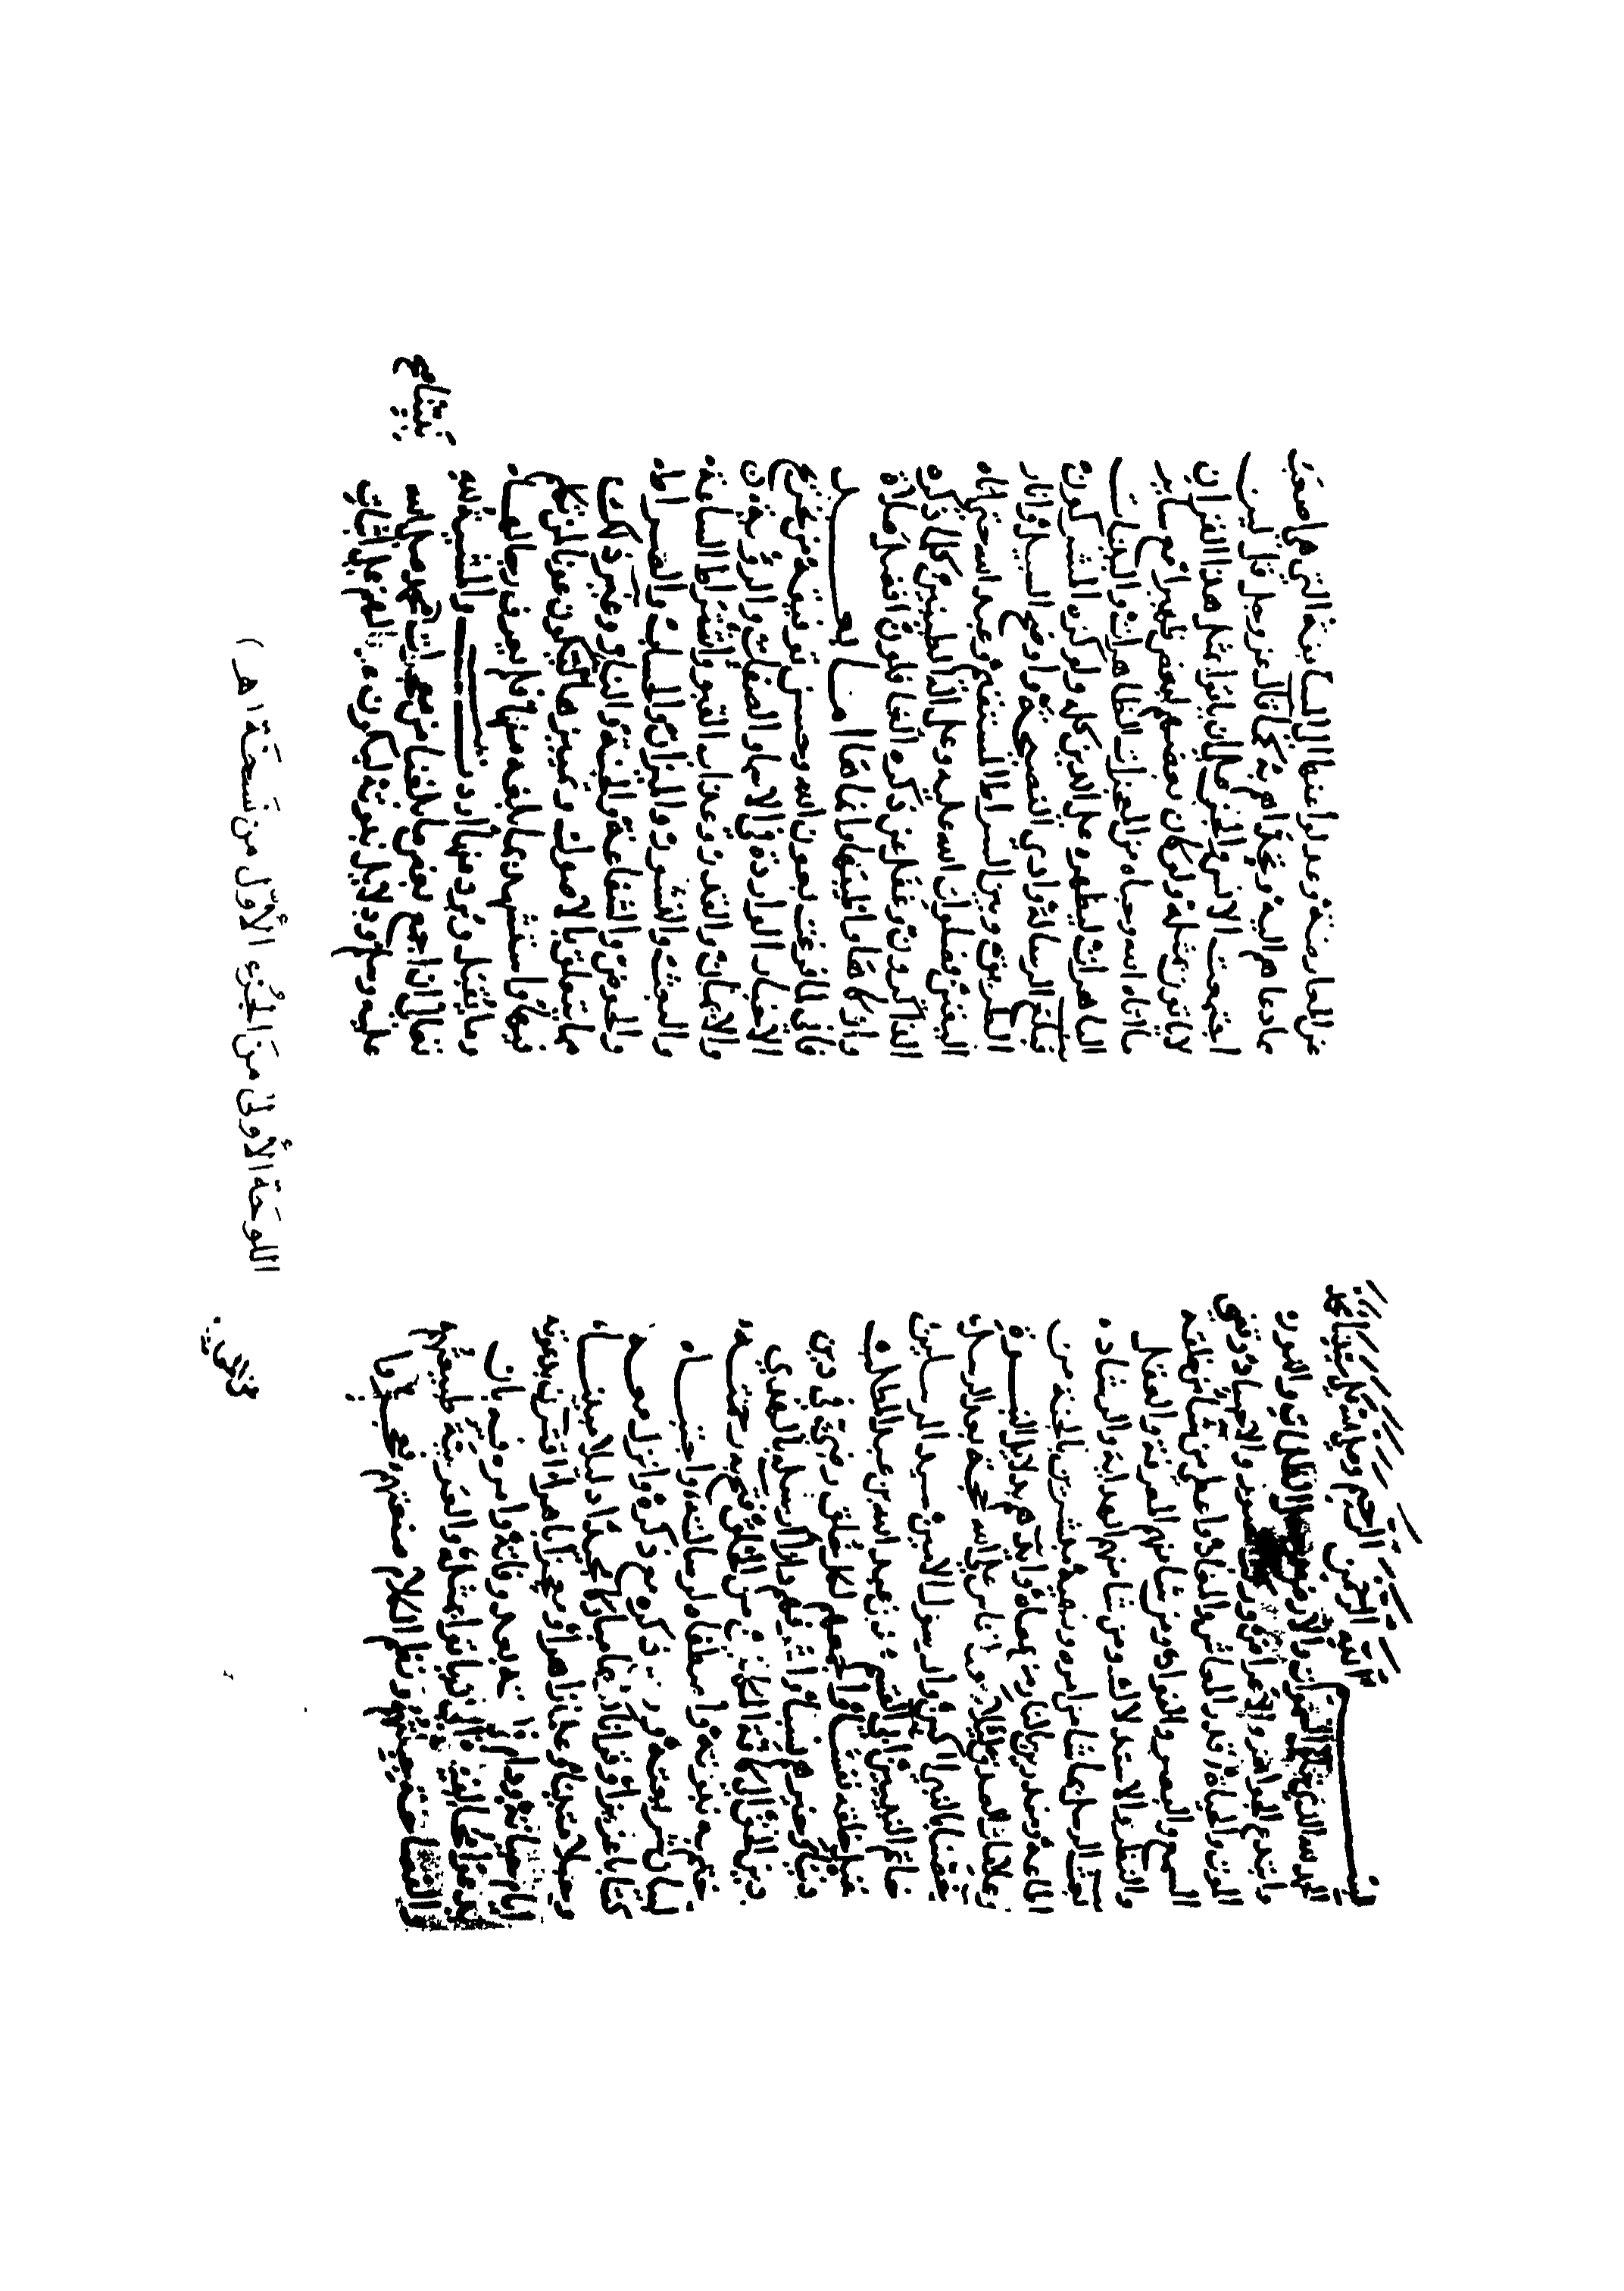 بسم الله الرحمن الرحيم وصلى الله على نبينا محمد
الحمد لله الذي خلق السموات والأرض وجعل الظلمات والنور
وابتدع الجواهر والأعراض وركب الصور والاجساد وقضى
الموت والحياة وقدر المعاش والمعاد واعطى من شاء من خلقه
السمع والبصر والفواد ومن شاء منهم المعرفة والعقل
والنظر والاستدلال ومن شاء منهم الهداية والرشاد
وبعث الرسل بما شاء من امره ونهيه مبشرين بالجنة من
اطاعه ومنذرين بالنار من عصاه وايدهم بدلايل النبوة
وعلامات الصدق لئلا يكون للناس على الله حجة بعد الرسل
خصنا بالنبي المكين والرسول الامين سيد المرسلين
خاتم النبيين ابي القسم محمد بن عبد الله بن عبد المطلب
خير خلقه نفسا واجمعهم لكل خلق رضي في دين
ودنيا وخيرهم نسبا واشرفهم دارا ارسله بالهدي
ودين الحق الى كافة المكلفين من الخلق فتح به رحمته
وختم به نبوته واصطفاه لرسالته واجتباه
لبيان شريعته ورفع ذكره مع ذكره وانزل معه
كتابا عزيزا وقرانا كريما مباركا مجيدا دليلا مبينا
وحبلا متينا وعلما زاهرا ونورا باهرا اقترن بدعوته
ايام حياته ودام في امته بعد وفاته وامرهم فيه بان
يدعو المخالفين الى ان ياتوا بمثله والعربية طبيعتهم
والفصاحة جبلتهم ونظم الكلام صنعتهم فعجزوا
عن المعارضة وعدلوا عنها الى المسايفة التي هي اصعب
مما دعاهم اليه وتحداهم به كما قال عز وجل قل لين
اجتمعت الانس والجن على ان ياتوا بمثل هذا القران
لا ياتون بمثله ولو كان بعضهم لبعض ظهيرا مع ساير
ما اتاه الله وحباه من المعجزات الظاهرات والبينات
الباهرات ليظهره على الدين كله ولو كره المشركون
فبلغ الرسالة وادى النصيحة واوضح السبيل وانار
الطريق وبين الصراط المستقيم وعبد الله حتى اتاه
اليقين فصلوات الله عليه وعلى آله الطيبين كلما ذكره
الذاكرون وغفل عن ذكره الغافلون افضل صلاة
وازكاها واطيبها وانماها اما بعد
فاني لما فرغت بعون الله وحسن توفيقه من تخريج
الاخبار الواردة في الاسماء والصفات والرؤية
والايمان والقدر وعذاب القبر واشراط الساعة
والبعث والنشور والميزان والحساب والصراط
والحوض والشفاعة والجنة والنار وغير ذلك
مما يتعلق بالاصول وتمييزها ليكون عونا لمن تكلم
فيها واستشهد بما بلغه منها فلم يعرف حالها
وما يقبل وما يرد منها اردت والمشيئة لله
تعالى ان اجمع بعض ما بلغنا من معجزات نبينا محمد صلى الله
عليه وسلم ودلايل نبوته ليكون عونا لهم على اثبات
اللوحة الأولى من الجزء الأول من نسخة (هـ)